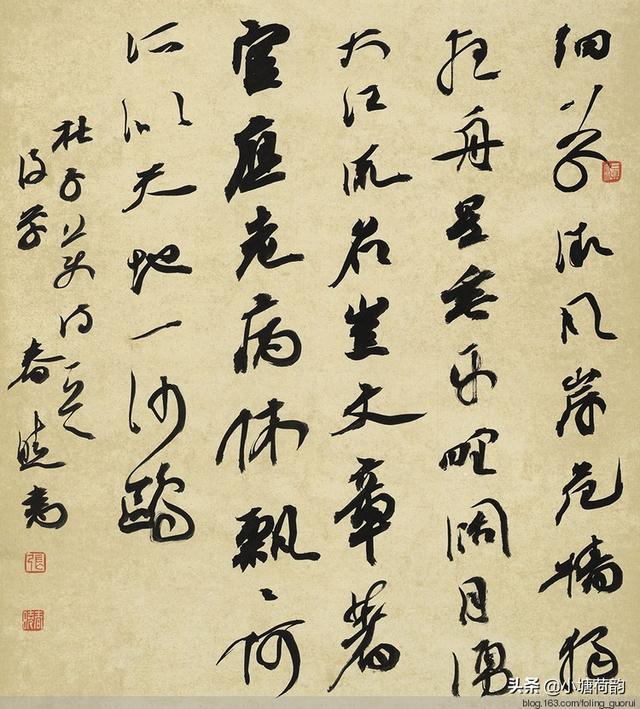 細草微風岸危樯獨
夜舟星垂平野闊月湧
大江流名豈文章著
官應老病休飄〻何
所似天地一沙鷗
杜子美詩一首
春曉書
張
头条 @小塘荷韵
blog.163.com/foling_guorui